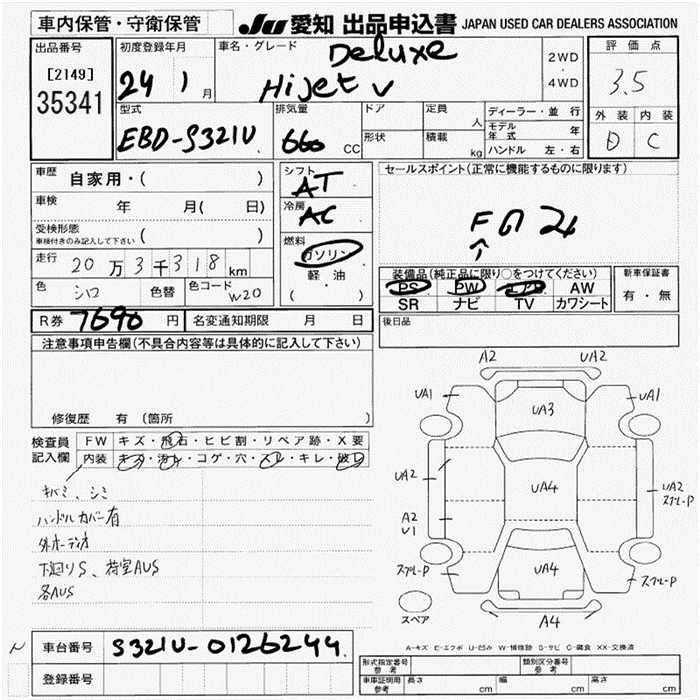 車内保管・守衛保管
JU 愛知 出品申込書 JAPAN USED CAR DEALERS ASSOCIATION
出品番号
[2149]
35341
初度登録年月
24 1 月
車名・グレード
Deluxe
Hijet V
2WD
・
4WD
評価点
3.5
外装 内装
D C
型式
EBD-S321V
排気量
660 CC
ドア
形状
定員
人
積載
kg
ディーラー・並行
モデル年式 年
ハンドル 左・右
車歴
自家用・( )
車検
年 月( 日)
受検形態
車検付きのみ記入して下さい ( )
走行
20万3千318km
色 シロ 色替 色コード W20
シフト
AT
冷房
AC
燃料
ガソリン
軽油
( )
セールスポイント(正常に機能するものに限ります)
装備品(純正品に限り○をつけてください)
PS PW エアB AW
SR ナビ TV カワシート
新車保証書
有・無
R券 7690 円 名変通知期限 月 日
後日品
注意事項申告欄(不具合内容等は具体的に記入して下さい)
修復歴 有(箇所 )
検査員
記入欄
FW キズ・飛石・ヒビ割・リペア跡・X要
内装 キズ・汚レ・コゲ・穴・スレ・キレ・破レ
キバミ、シミ
ハンドルカバー有
外オーディオ
下廻りS、荷室AUS
各AUS
A2 UA2
UA1 UA3 UA1
UA2 UA4 UA2
スプレーP
A2
U1
スプレーP UA4 スプレーP
スペア A4
A-キズ E-エクボ U-凹み W-補修跡 S-サビ C-腐食 XX-交換済
車台番号 S321V-0126244
登録番号
形式指定番号
参考
類別区分番号
参考
車庫証明用
参考
長さ cm 幅 cm 高さ cm